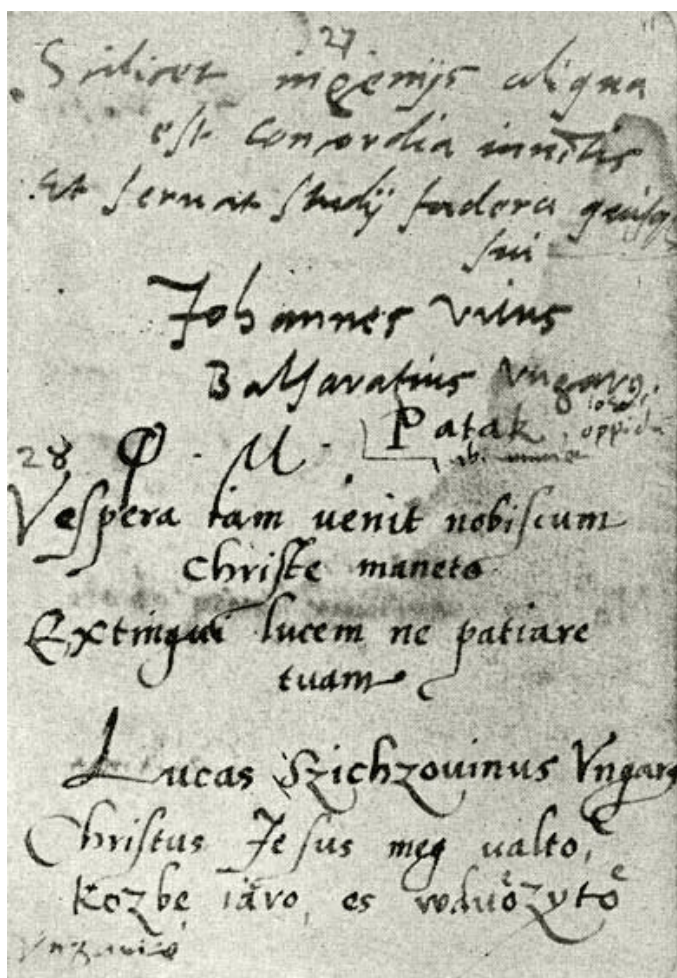 27
Scilicet ingenijs aliqua
est Concordia iunctis
Et seruat studij fœdera quisq
sui
Johannes vitus
Balsaratius Vngarq
Patak, oppidū
28 P. M.
Vespera iam uenit nobiscum
Christe maneto
Extingui lucem ne patiare
tuam
Lucas Szichzouinus Vngarq
Christus Jesus meg ualto,
Kozbe iaro, es